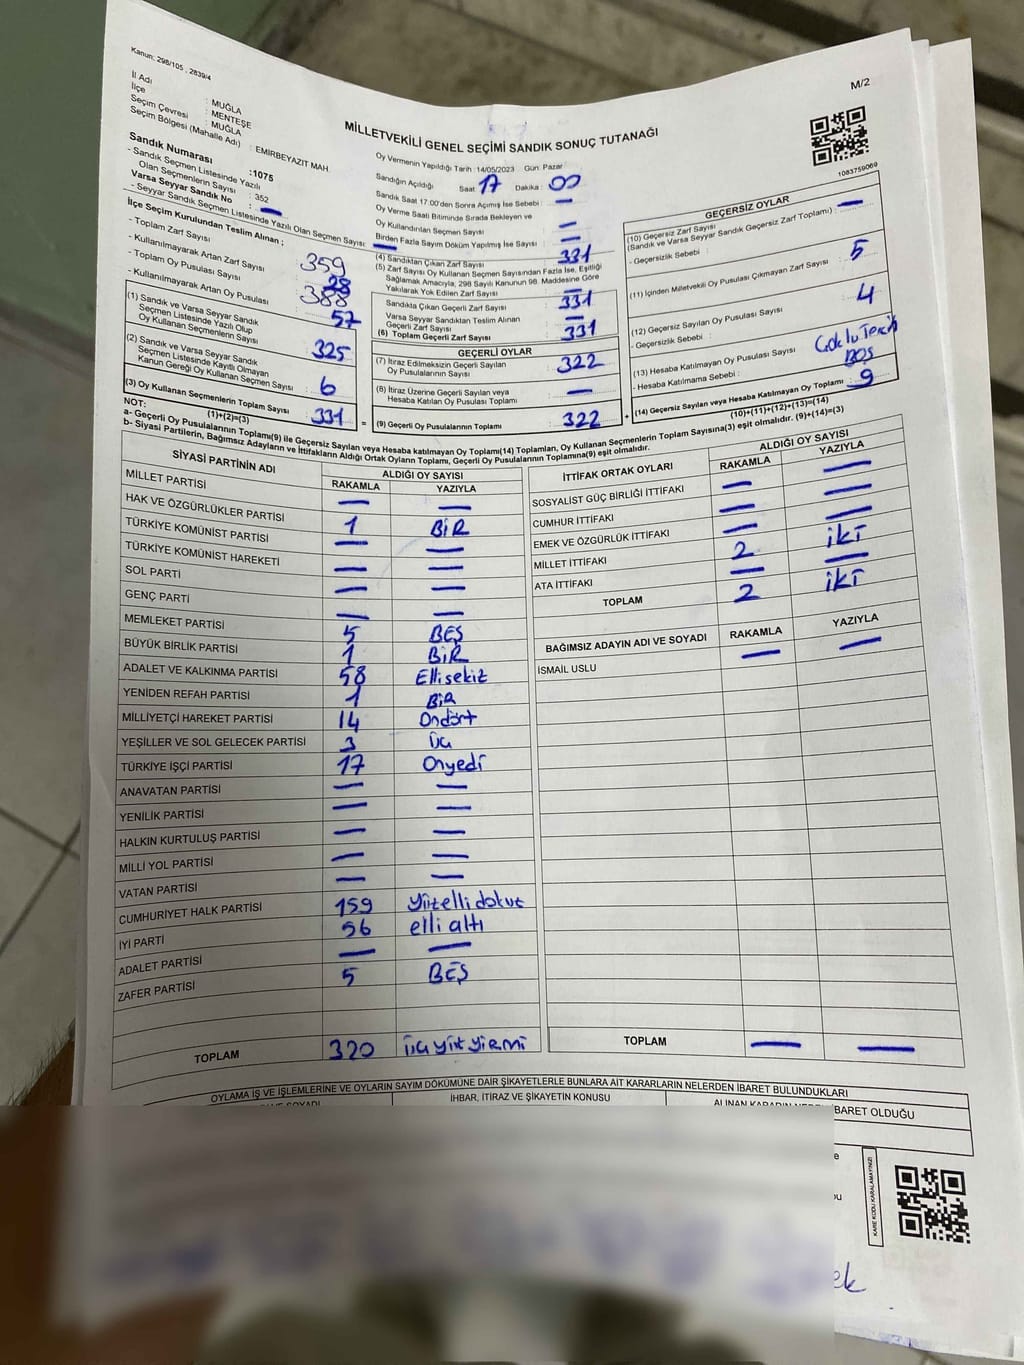 Kanun: 298/105 , 2839/4
M/2
İl Adı : MUĞLA
İlçe : MENTEŞE
Seçim Çevresi : MUĞLA
Seçim Bölgesi (Mahalle Adı) : EMİRBEYAZIT MAH.
MİLLETVEKİLİ GENEL SEÇİMİ SANDIK SONUÇ TUTANAĞI
1083759069
Sandık Numarası :1075
- Sandık Seçmen Listesinde Yazılı
Olan Seçmenlerin Sayısı : 352
Varsa Seyyar Sandık No : —
- Seyyar Sandık Seçmen Listesinde Yazılı Olan Seçmen Sayısı: —
İlçe Seçim Kurulundan Teslim Alınan ;
- Toplam Zarf Sayısı : 359
- Kullanılmayarak Artan Zarf Sayısı : 28
- Toplam Oy Pusulası Sayısı : 388
- Kullanılmayarak Artan Oy Pusulası : 57
(1) Sandık ve Varsa Seyyar Sandık
Seçmen Listesinde Yazılı Olup
Oy Kullanan Seçmenlerin Sayısı : 325
(2) Sandık ve Varsa Seyyar Sandık
Seçmen Listesinde Kayıtlı Olmayan
Kanun Gereği Oy Kullanan Seçmen Sayısı : 6
(3) Oy Kullanan Seçmenlerin Toplam Sayısı : 331
(1)+(2)=(3)
Oy Vermenin Yapıldığı Tarih :14/05/2023 Gün: Pazar
Sandığın Açıldığı Saat : 17 Dakika : 00
Sandık Saat 17:00'den Sonra Açılmış İse Sebebi : —
Oy Verme Saati Bitiminde Sırada Bekleyen ve
Oy Kullandırılan Seçmen Sayısı : —
Birden Fazla Sayım Döküm Yapılmış İse Sayısı : —
(4) Sandıktan Çıkan Zarf Sayısı : 331
(5) Zarf Sayısı Oy Kullanan Seçmen Sayısından Fazla İse, Eşitliği
Sağlamak Amacıyla; 298 Sayılı Kanunun 98. Maddesine Göre
Yakılarak Yok Edilen Zarf Sayısı : —
Sandıkta Çıkan Geçerli Zarf Sayısı : 331
Varsa Seyyar Sandıktan Teslim Alınan
Geçerli Zarf Sayısı : —
(6) Toplam Geçerli Zarf Sayısı : 331
GEÇERLİ OYLAR
(7) İtiraz Edilmeksizin Geçerli Sayılan
Oy Pusulalarının Sayısı : 322
(8) İtiraz Üzerine Geçerli Sayılan veya
Hesaba Katılan Oy Pusulası Toplamı : —
(9) Geçerli Oy Pusulalarının Toplamı : 322
GEÇERSİZ OYLAR
(10) Geçersiz Zarf Sayısı
(Sandık ve Varsa Seyyar Sandık Geçersiz Zarf Toplamı) : —
- Geçersizlik Sebebi :
(11) İçinden Milletvekili Oy Pusulası Çıkmayan Zarf Sayısı : 5
(12) Geçersiz Sayılan Oy Pusulası Sayısı : 4
- Geçersizlik Sebebi : Çoklu Tercih
(13) Hesaba Katılmayan Oy Pusulası Sayısı : BOŞ
- Hesaba Katılmama Sebebi :
(14) Geçersiz Sayılan veya Hesaba Katılmayan Oy Toplamı : 9
(10)+(11)+(12)+(13)=(14)
NOT:
a- Geçerli Oy Pusulalarının Toplamı(9) ile Geçersiz Sayılan veya Hesaba Katılmayan Oy Toplamı(14) Toplamları, Oy Kullanan Seçmenlerin Toplam Sayısına(3) eşit olmalıdır. (9)+(14)=(3)
b- Siyasi Partilerin, Bağımsız Adayların ve İttifakların Aldığı Ortak Oyların Toplamı, Geçerli Oy Pusulalarının Toplamına(9) eşit olmalıdır.
SİYASİ PARTİNİN ADI ALDIĞI OY SAYISI
RAKAMLA YAZIYLA
MİLLET PARTİSİ — —
HAK VE ÖZGÜRLÜKLER PARTİSİ 1 BİR
TÜRKİYE KOMÜNİST PARTİSİ — —
TÜRKİYE KOMÜNİST HAREKETİ — —
SOL PARTİ — —
GENÇ PARTİ — —
MEMLEKET PARTİSİ 5 BEŞ
BÜYÜK BİRLİK PARTİSİ 1 BİR
ADALET VE KALKINMA PARTİSİ 58 Ellisekiz
YENİDEN REFAH PARTİSİ 1 BİR
MİLLİYETÇİ HAREKET PARTİSİ 14 Ondört
YEŞİLLER VE SOL GELECEK PARTİSİ 3 üç
TÜRKİYE İŞÇİ PARTİSİ 17 Onyedi
ANAVATAN PARTİSİ — —
YENİLİK PARTİSİ — —
HALKIN KURTULUŞ PARTİSİ — —
MİLLİ YOL PARTİSİ — —
VATAN PARTİSİ — —
CUMHURİYET HALK PARTİSİ 159 yüzelli dokuz
İYİ PARTİ 56 elli altı
ADALET PARTİSİ — —
ZAFER PARTİSİ 5 BEŞ
TOPLAM 320 üçyüz yirmi
İTTİFAK ORTAK OYLARI ALDIĞI OY SAYISI
RAKAMLA YAZIYLA
SOSYALİST GÜÇ BİRLİĞİ İTTİFAKI — —
CUMHUR İTTİFAKI — —
EMEK VE ÖZGÜRLÜK İTTİFAKI — —
MİLLET İTTİFAKI 2 iki
ATA İTTİFAKI — —
TOPLAM 2 iki
BAĞIMSIZ ADAYIN ADI VE SOYADI RAKAMLA YAZIYLA
İSMAİL USLU — —
TOPLAM — —
OYLAMA İŞ VE İŞLEMLERİNE VE OYLARIN SAYIM DÖKÜMÜNE DAİR ŞİKAYETLERLE BUNLARA AİT KARARLARIN NELERDEN İBARET BULUNDUKLARI
SOYADI İHBAR, İTİRAZ VE ŞİKAYETİN KONUSU ALINAN KARARIN NEDEN İBARET OLDUĞU
KARE KODU KARALAMAYINIZ!